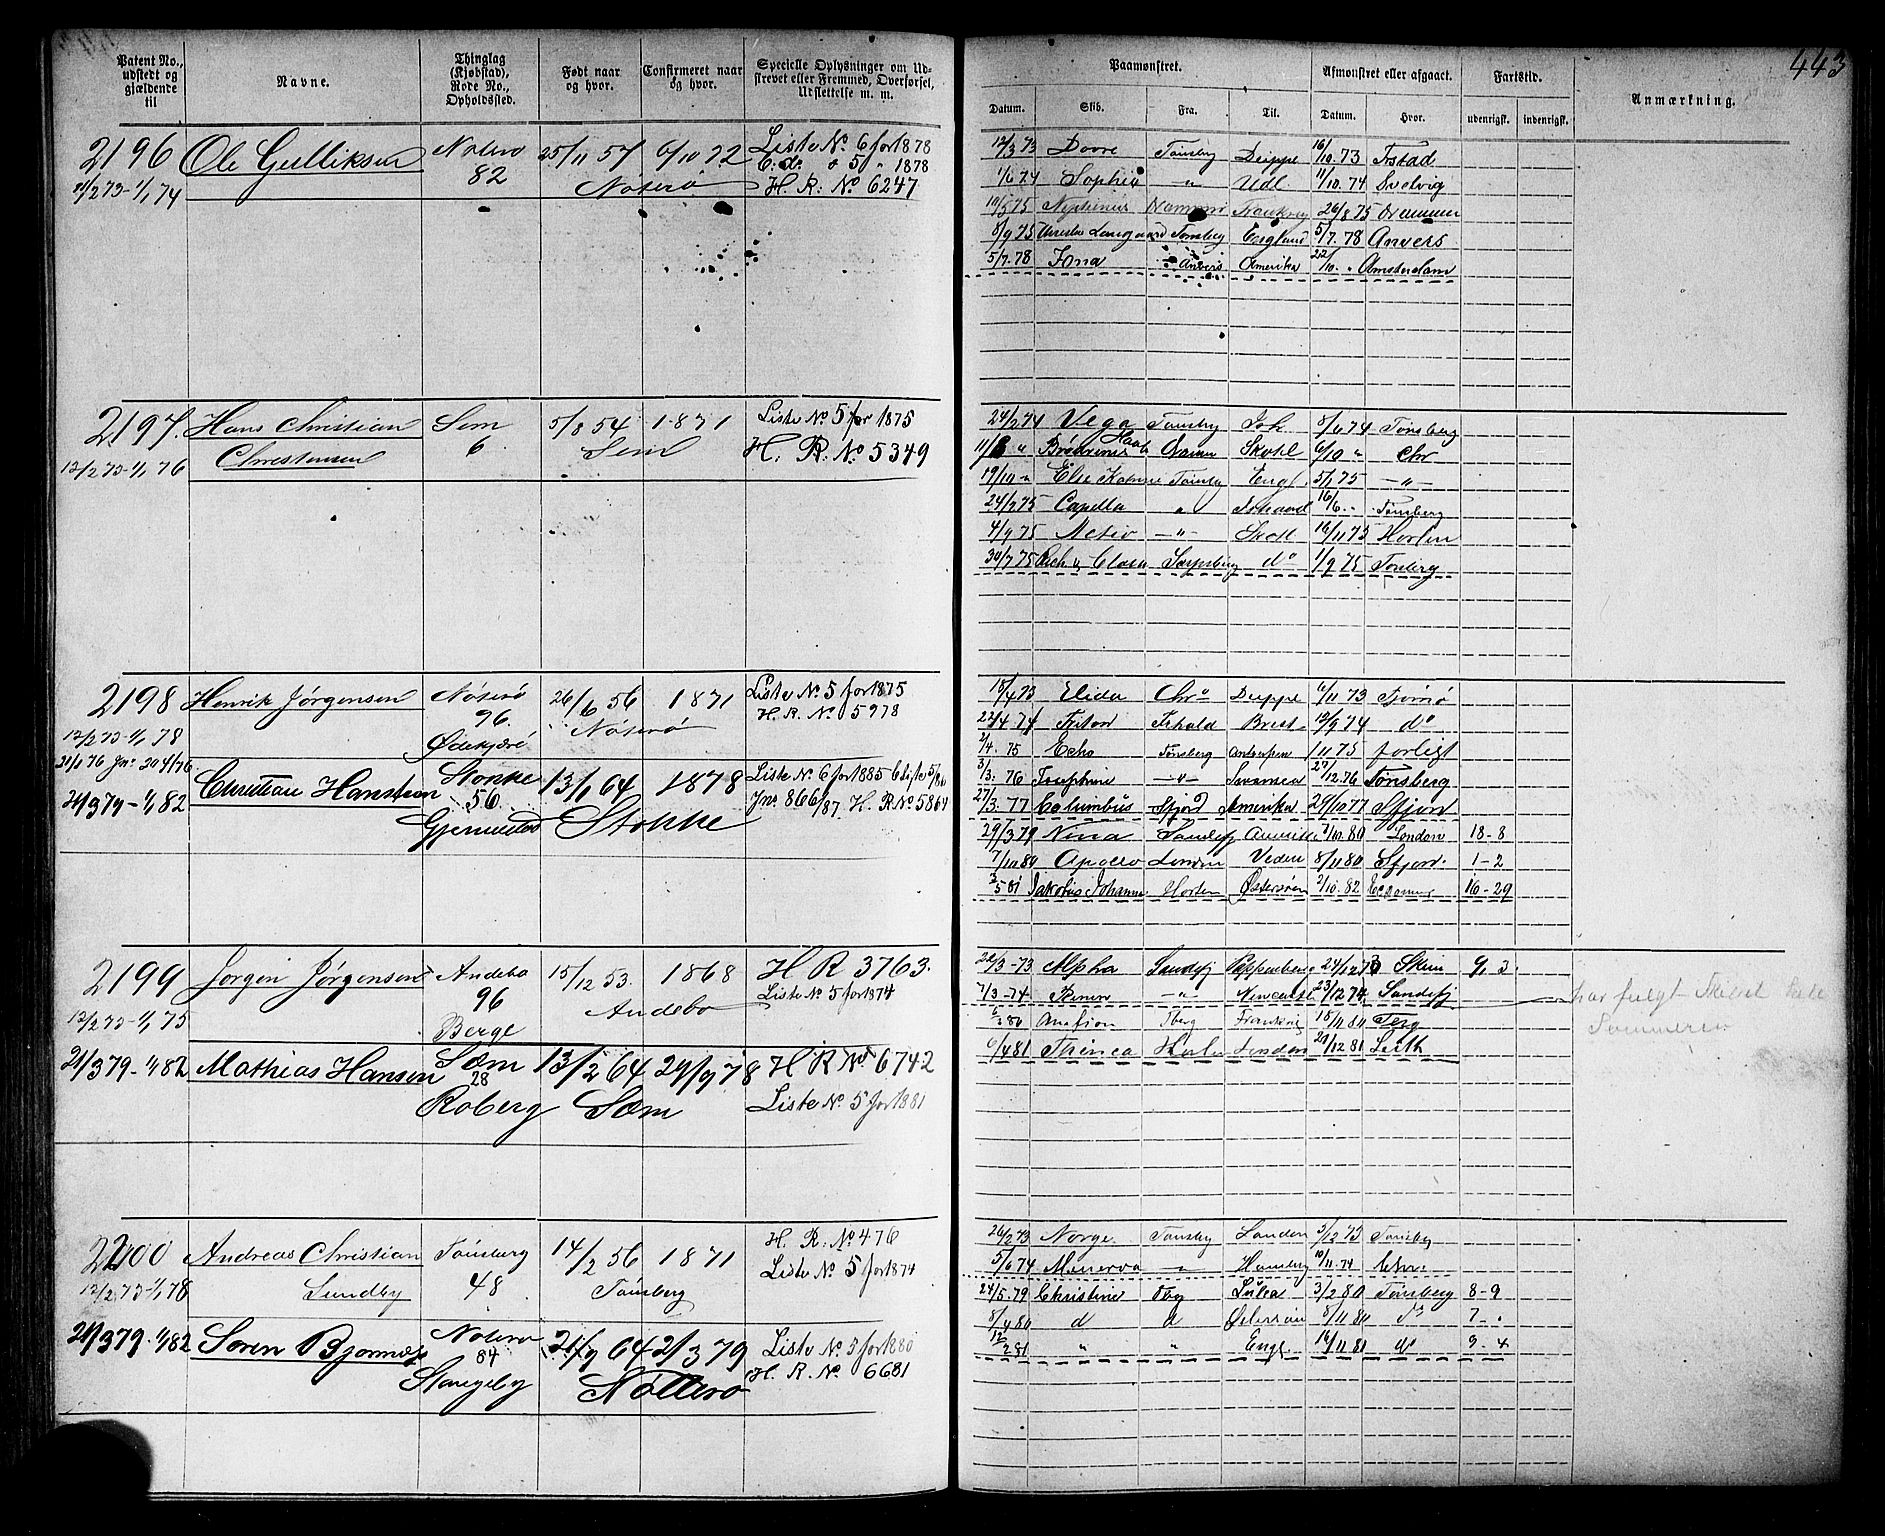 443
Patent No., udstedt og gjældende til
Navne.
Thinglag (Kjøbstad), Rode No., Opholdssted.
Født naar og hvor.
Confirmeret naar og hvor.
Specielle Oplysninger om Udskrevet eller Fremmed, Overførsel, Udslettelse m. m.
Paamønstret.
Afmønstret eller afgaaet.
Fartstid.
Anmærkning.
Datum. Skib. Fra. Til. Datum. Hvor. udenrigsk. indenrigsk.
2196 Ole Gulliksen Nøterø 25/11 57 6/10 72 Liste No 6 for 1878
82 C. do " 5 " 1878
11/2 73-1/1 74 Nøterø H. R: No 6247
12/3 73 Dovre Tønsberg Dieppe 16/10.73 Frstad
1/6 74 Sophie " Udl. 11/10.74 Svelvig
10/5 75 Neptunus Drammen Frankrig 26/8 75 Drammen
8/9 75 Langaard Tønsberg England 5/7.78 Anvers
5/7.78 Iona Anvers Amerika 22/10. " Amsterdam
2197. Hans Christian Sem 5/8 54 1871 Liste No 5 for 1875
Christensen 6 Sem H. R: No 5349
12/2 73-1/1 76
24/2 74 Vega Tønsberg Ish. 8/6 74 Tønsberg
11/8 " Brødrenes Haab Drammen Skotl 6/10 " Chr
19/10 " Else Katrine Tønsberg Engl. 5/1 75 - " -
24/2 75 Capella " Ishavet 16/6. " Tønsberg
4/9 75 Activ - " - Skotl 16/11 75 Horten
30/7 75 Sarpsborg do 1/9 75 Tønsberg
2198 Henrik Jørgensen Nøterø 26/6 56 1871 Liste No 5 for 1875
96. Nøterø H. R. No 5978
12/2 73-1/1 78 Ødekjære
21/1 76 Jno 204/76
15/4 73 Elida Chra Dieppe 6/11 73 Tjømø
22/4 74 Triton Frhald Brest 12/9 74 do
2/4. 75 Echo Tønsberg Antwerpen 1/11 75 forligt
3/3. 76 Josephine - " - Swansea 27/12.76 Tønsberg
27/3. 77 Columbus Sfjord Amerika 29/10 77 Sfjord
21/3 79-1/1 82 Christian Hansen Stokke 13/1 64 1878 Liste No 6 for 1885 C Liste 5/86
56. Jno 866/87. H. R No 5864
Gjernestad Stokke
29/3 79 Nina Sandefj 7/10.80 London 18-8
7/10 80 Apollo London Veden 8/11 80 Sfjord. 1-2
3/5 81 Jakobus Johannes Horten Østersøen 2/10.82 16-29
2199 Jørgen Jørgensen Andebo 15/12 53. 1868 H R 3763.
96 Andebo Liste No 5 for 1874
12/2 73-1/1 75 Berge
22/3-73 Alpha Sandefj Pappenberg 24/12 73 Skien 9. 3.
7/3-74 - " - Newcastle 23/12 74 Sandefj
har fulgt Skibet hele
Sommeren
21/3 79-1/1 82 Mathias Hansen Sæm 13/2 64 29/9 78 H R No 6742
28
Roberg Sæm Liste No 5 for 1881
6/3 80 Amfion Tberg Frankrig 15/11 80 Tbrg
6/4 81 Thinea Horten London 29/12 81 Leith
2200 Andreas Christian Tønsberg 14/2 56 1871 H. R: No 476
Sundby 48 Tønsberg Liste No 5 for 1874
12/2 73-1/1 78
26/2 73 Norge. Tønsberg London 3/12 73 Tønsberg
5/6 74 Minerva " Hamborg 10/11.74 Chr.
21/3 79-1/1 82 Søren Bjørnsen Nøterø 21/9 64 2/3 79 Liste No 3 for 1880
84 H. R. No 6681
Stangeby Nøtterø
24/5.79 Christine Tbg Luleå 3/2 80 Tønsberg 8-9
8/4 80 d d Østersøen 8/11 80 do 7-.
12/2 81 " " Engl 16/11 81 do 9-4